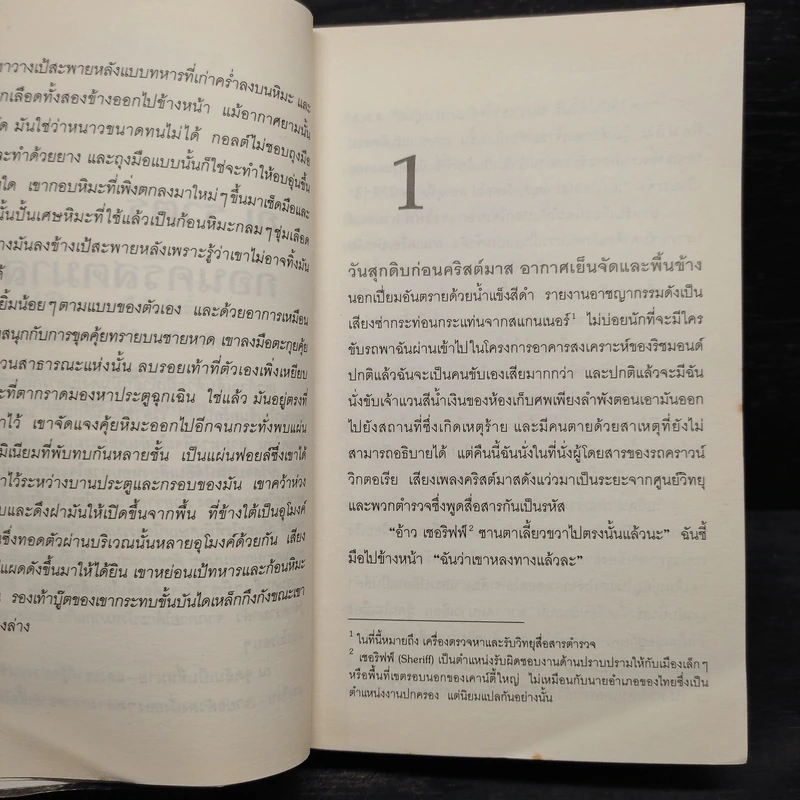 าวางเป้สะพายหลังแบบทหารที่เก่าคร่ำลงบนหิมะ และ
กเลือดทั้งสองข้างออกไปข้างหน้า แม้อากาศยามนั้น
ัด มันใช่ว่าหนาวขนาดทนไม่ได้ กอลต์ไม่ชอบถุงมือ
ะทำด้วยยาง และถุงมือแบบนั้นก็ใช่จะทำให้อบอุ่นขึ้น
ใด เขากอบหิมะที่เพิ่งตกลงมาใหม่ๆขึ้นมาเช็ดมือและ
นั้นปั้นเศษหิมะที่ใช้แล้วเป็นก้อนหิมะกลมๆชุ่มเลือด
างมันลงข้างเป้สะพายหลังเพราะรู้ว่าเขาไม่อาจทิ้งมัน
ด้
ยิ้มน้อยๆตามแบบของตัวเอง และด้วยอาการเหมือน
สนุกกับการขุดคุ้ยทรายบนชายหาด เขาลงมือตะกุยคุ้ย
วนสาธารณะแห่งนั้น ลบรอยเท้าที่ตัวเองเพิ่งเหยียบ
ะที่ตากราดมองหาประตูฉุกเฉิน ใช่แล้ว มันอยู่ตรงที่
าไว้ เขาจัดแจงคุ้ยหิมะออกไปอีกจนกระทั่งพบแผ่น
มิเนียมที่พับทบกันหลายชั้น เป็นแผ่นฟอยล์ซึ่งเขาได้
าไว้ระหว่างบานประตูและกรอบของมัน เขาคว้าห่วง
บและดึงฝามันให้เปิดขึ้นจากพื้น ที่ข้างใต้เป็นอุโมงค์
ซึ่งทอดตัวผ่านบริเวณนั้นหลายอุโมงค์ด้วยกัน เสียง
แผดดังขึ้นมาให้ได้ยิน เขาหย่อนเป้ทหารและก้อนหิมะ
รองเท้าบู๊ตของเขากระทบขั้นบันไดเหล็กกึงกังขณะเขา
งล่าง
1
วันสุกดิบก่อนคริสต์มาส อากาศเย็นจัดและพื้นข้าง
นอกเปี่ยมอันตรายด้วยน้ำแข็งสีดำ รายงานอาชญากรรมดังเป็น
เสียงซ่ากระท่อนกระแท่นจากสแกนเนอร์¹ ไม่บ่อยนักที่จะมีใคร
ขับรถพาฉันผ่านเข้าไปในโครงการอาคารสงเคราะห์ของริชมอนด์
ปกติแล้วฉันจะเป็นคนขับเองเสียมากกว่า และปกติแล้วจะมีฉัน
นั่งขับเจ้าแวนสีน้ำเงินของห้องเก็บศพเพียงลำพังตอนเอามันออก
ไปยังสถานที่ซึ่งเกิดเหตุร้าย และมีคนตายด้วยสาเหตุที่ยังไม่
สามารถอธิบายได้ แต่คืนนี้ฉันนั่งในที่นั่งผู้โดยสารของรถคราวน์
วิกตอเรีย เสียงเพลงคริสต์มาสดังแว่วมาเป็นระยะจากศูนย์วิทยุ
และพวกตำรวจซึ่งพูดสื่อสารกันเป็นรหัส
“อ้าว เชอริฟฟ์² ซานตาเลี้ยวขวาไปตรงนั้นแล้วนะ” ฉันชี้
มือไปข้างหน้า “ฉันว่าเขาหลงทางแล้วละ”
¹ ในที่นี้หมายถึง เครื่องตรวจหาและรับวิทยุสื่อสารตำรวจ
² เชอริฟฟ์ (Sheriff) เป็นตำแหน่งรับผิดชอบงานด้านปราบปรามให้กับเมืองเล็กๆ
หรือพื้นที่เขตรอบนอกของเคาน์ตี้ใหญ่ ไม่เหมือนกับนายอำเภอของไทยซึ่งเป็น
ตำแหน่งงานปกครอง แต่นิยมแปลกันอย่างนั้น